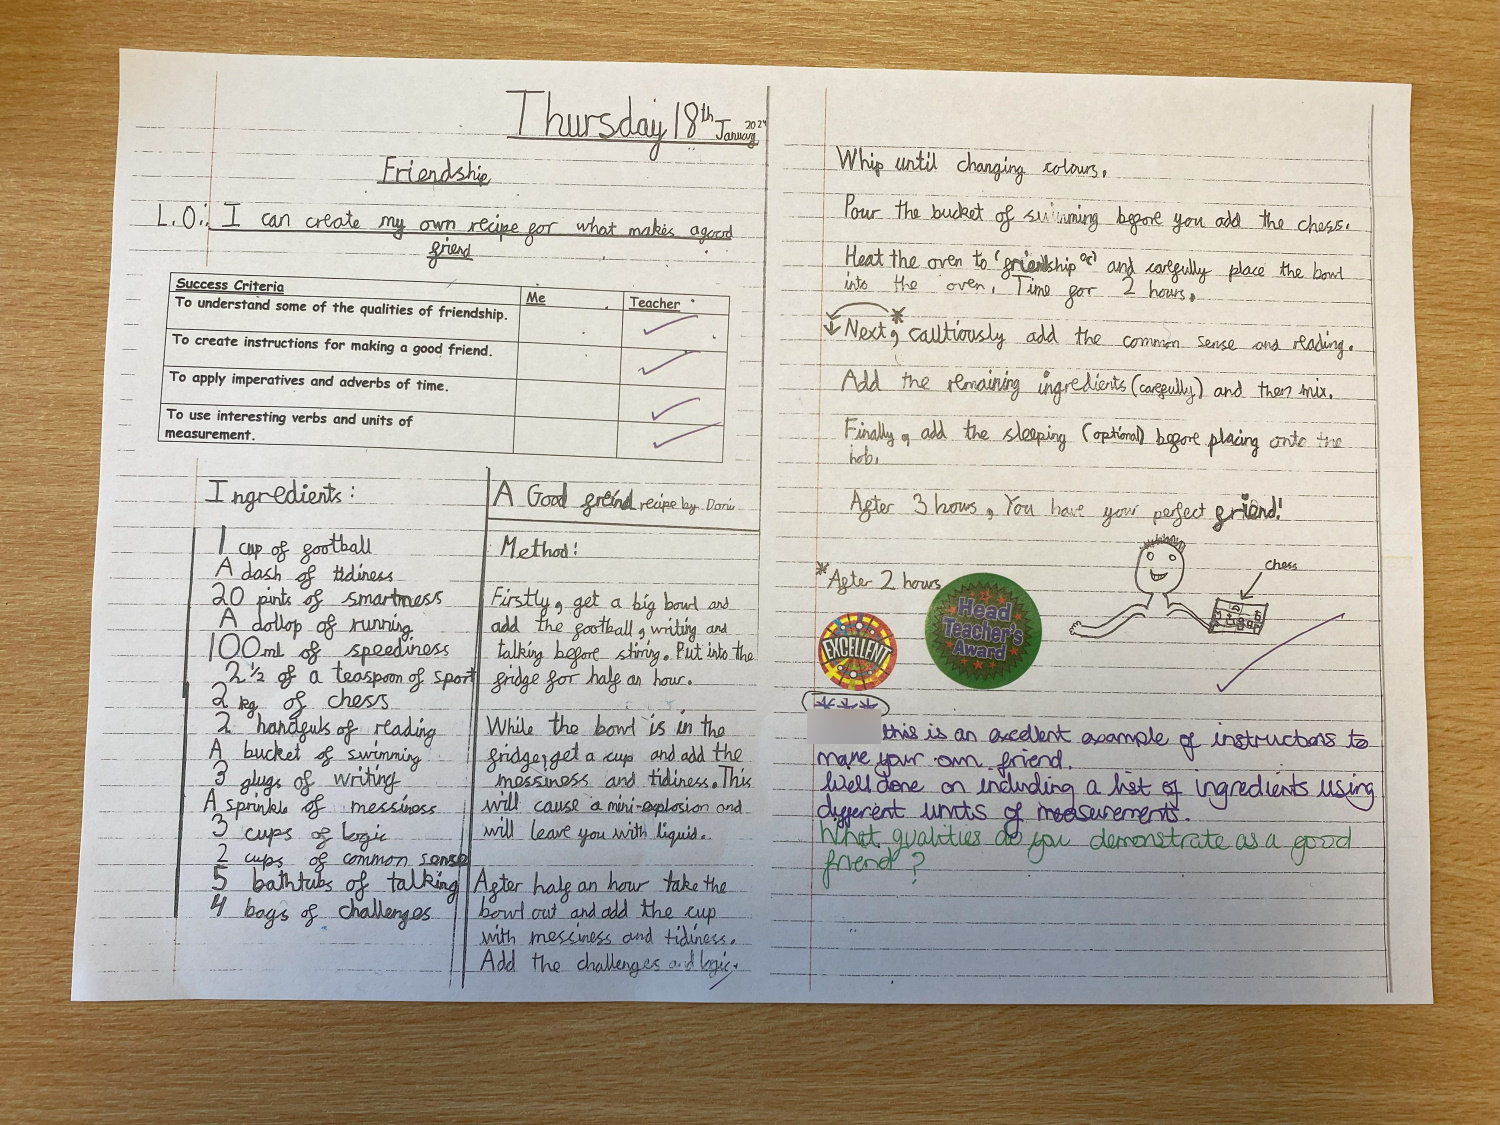 Thursday 18th January 2024
Friendship
L.O.: I can create my own recipe for what makes a good
friend
Success Criteria
Me
Teacher
To understand some of the qualities of friendship.
To create instructions for making a good friend.
To apply imperatives and adverbs of time.
To use interesting verbs and units of
measurement.
Ingredients:
1 cup of football
A dash of tidiness
20 pints of smartness
A dollop of running
100ml of speediness
2 1/2 of a teaspoon of sport
2 kg of chess
2 handfuls of reading
A bucket of swimming
3 glugs of writing
A sprinkle of messiness
3 cups of logic
2 cups of common sense
5 bathtubs of talking
4 bags of challenges
A Good freind recipe by
Method:
Firstly, get a big bowl and
add the football, writing and
talking before stiring. Put into the
fridge for half an hour.
While the bowl is in the
fridge, get a cup and add the
messiness and tidiness. This
will cause a mini-explosion and
will leave you with liquid.
After half an hour take the
bowl out and add the cup
with messiness and tidiness.
Add the challenges and logic.
Whip until changing colours.
Pour the bucket of swimming before you add the chess.
Heat the oven to 'friendship°C' and carefully place the bowl
into the oven. Time for 2 hours.
Next,* cautiously add the common sense and reading.
Add the remaining ingredients (carefully) and then mix.
Finally, add the sleeping (optional) before placing onto the
hob.
After 3 hours, You have your perfect friend!
chess
*After 2 hours
EXCELLENT
Head
Teacher's
Award
this is an excellent example of instructions to
make your own friend.
Well done on including a list of ingredients using
different units of measurements.
What qualities do you demonstrate as a good
friend?